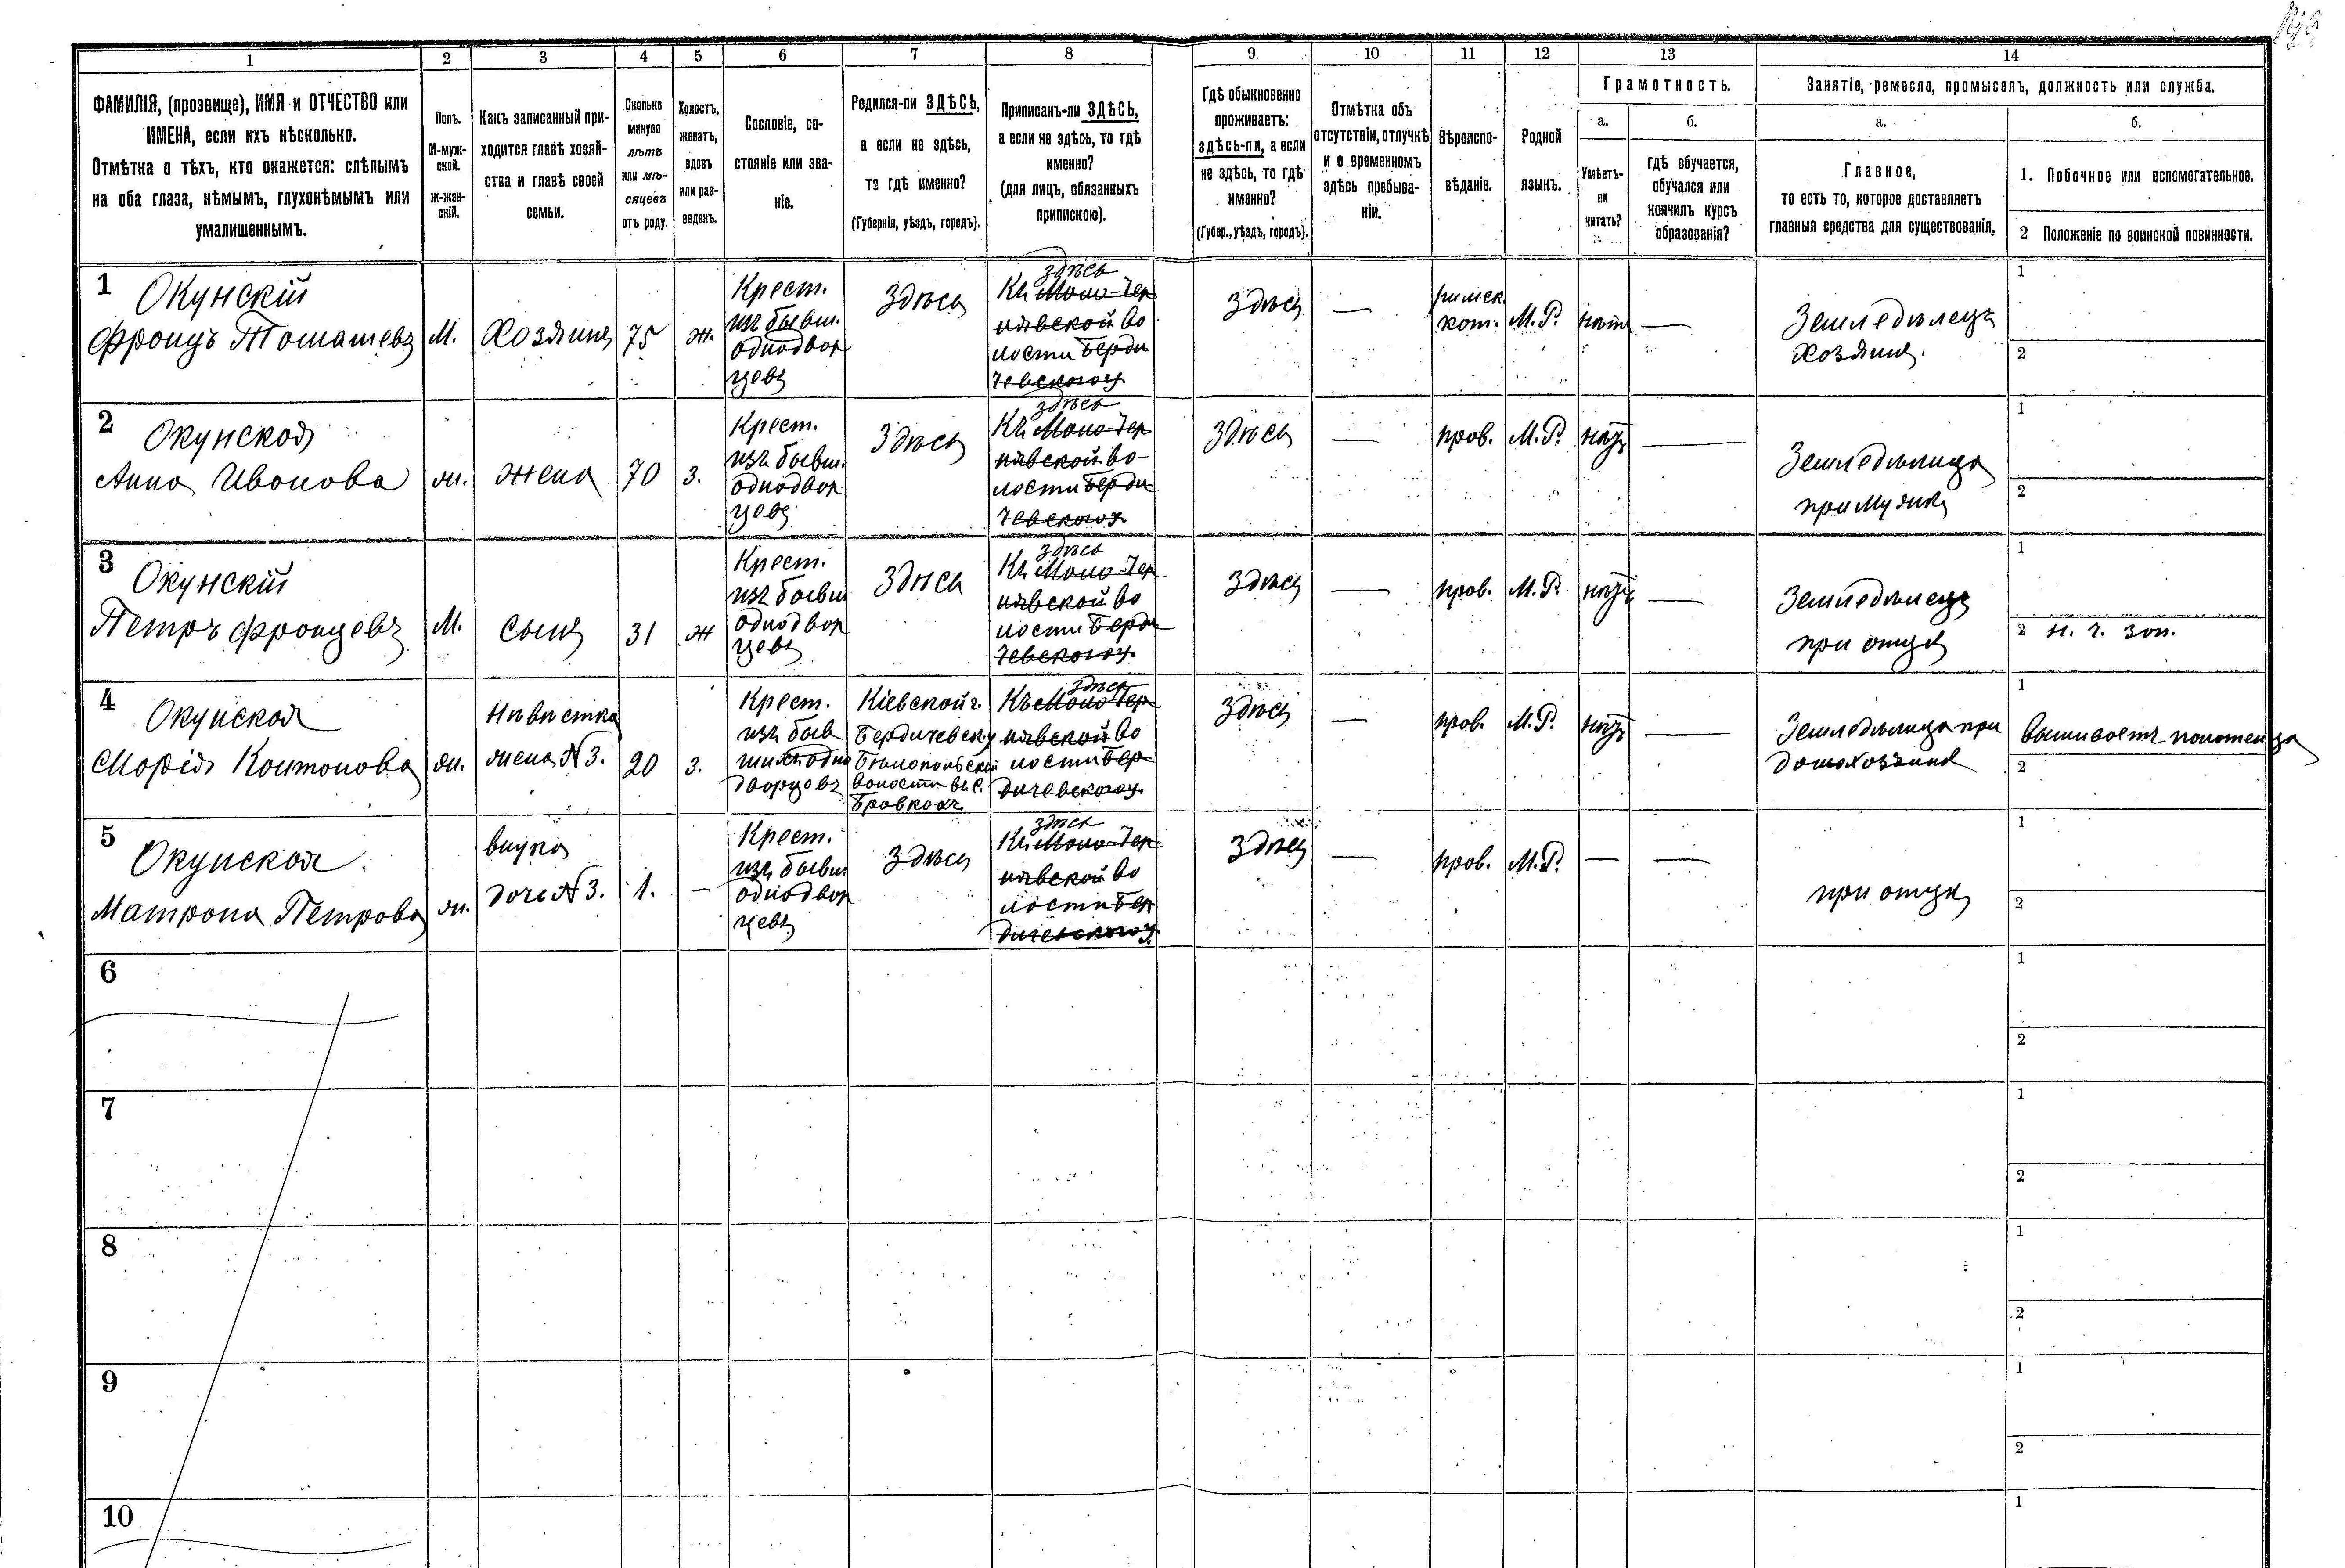 1 2 3 4 5 6 7 8 9 10 11 12 13 14
ФАМИЛІЯ, (прозвище), ИМЯ и ОТЧЕСТВО или
ИМЕНА, если ихъ нѣсколько.
Отмѣтка о тѣхъ, кто окажется: слѣпымъ
на оба глаза, нѣмымъ, глухонѣмымъ или
умалишеннымъ.
Полъ.
М-муж-
ской.
ж-жен-
скій.
Какъ записанный при-
ходится главѣ хозяй-
ства и главѣ своей
семьи.
Сколько
минуло
лѣтъ
или мѣ-
сяцевъ
отъ роду.
Холостъ,
женатъ,
вдовъ
или раз-
веденъ.
Сословіе, со-
стояніе или зва-
ніе.
Родился-ли ЗДѢСЬ,
а если не здѣсь,
то гдѣ именно?
(Губернія, уѣздъ, городъ).
Приписанъ-ли ЗДѢСЬ,
а если не здѣсь, то гдѣ
именно?
(для лицъ, обязанныхъ
припискою).
Гдѣ обыкновенно
проживаетъ:
здѣсь-ли, а если
не здѣсь, то гдѣ
именно?
(Губер., уѣздъ, городъ).
Отмѣтка объ
отсутствіи, отлучкѣ
и о временномъ
здѣсь пребыва-
ніи.
Вѣроиспо-
вѣданіе.
Родной
языкъ.
Грамотность.
а.
Умѣетъ-
ли
читать?
б.
гдѣ обучается,
обучался или
кончилъ курсъ
образованія?
Занятіе, ремесло, промыселъ, должность или служба.
а.
Главное,
то есть то, которое доставляетъ
главныя средства для существованія.
б.
1. Побочное или вспомогательное.
2 Положеніе по воинской повинности.
1
Окунскій
Францъ Томашевъ
М.
Хозяинъ
75
ж.
Крест.
изъ бывш.
однодвор
цевъ
Здѣсь
здѣсь
Къ Мало-Чер
нявской во
лости Берди
чевскаго у
Здѣсь
—
римск.
кат.
М.Р.
нѣтъ
—
Земледѣлецъ
Хозяинъ.
1
2
2
Окунская
Анна Иванова
ж.
жена
70
з.
Крест.
изъ бывш.
однодвор
цевъ
Здѣсь
здѣсь
Къ Мало-Чер
нявской во-
лости Берди
чевскаго у.
Здѣсь
—
прав.
М.Р.
нѣтъ
—
Земледѣлица
при мужѣ
1
2
3
Окунскій
Петръ Францевъ
М.
сынъ
31
ж
Крест.
изъ бывш
однодвор
цевъ
Здѣсь
здѣсь
Къ Мало-Чер
нявской во
лости Берди
чевскаго у.
Здѣсь
—
прав.
М.Р.
нѣтъ
—
Земледѣлецъ
при отцѣ
1
2 н. ч. зап.
4
Окунская
Марія Антонова
ж.
Невѣстка
жена №3.
20
з.
Крест.
изъ быв
шихъ одно
дворцевъ
Кіевской г.
Бердичевск. у
Бѣлопольской
волости въ с.
Бровкахъ
здѣсь
Къ Мало-Чер
нявской во
лости Бер
дичевскаго у.
Здѣсь
—
прав.
М.Р.
нѣтъ
—
Земледѣлица при
домохозяинѣ
1
вышиваетъ полотенца
2
5
Окунская
Матрона Петрова
ж.
внука
дочь №3.
1.
—
Крест.
изъ бывш
однодвор
цевъ
Здѣсь
здѣсь
Къ Мало-Чер
нявской во
лости Бер
дичевскаго у.
Здѣсь
—
прав.
М.Р.
—
—
при отцѣ
1
2
6
1
2
7
1
2
8
1
2
9
1
2
10
1